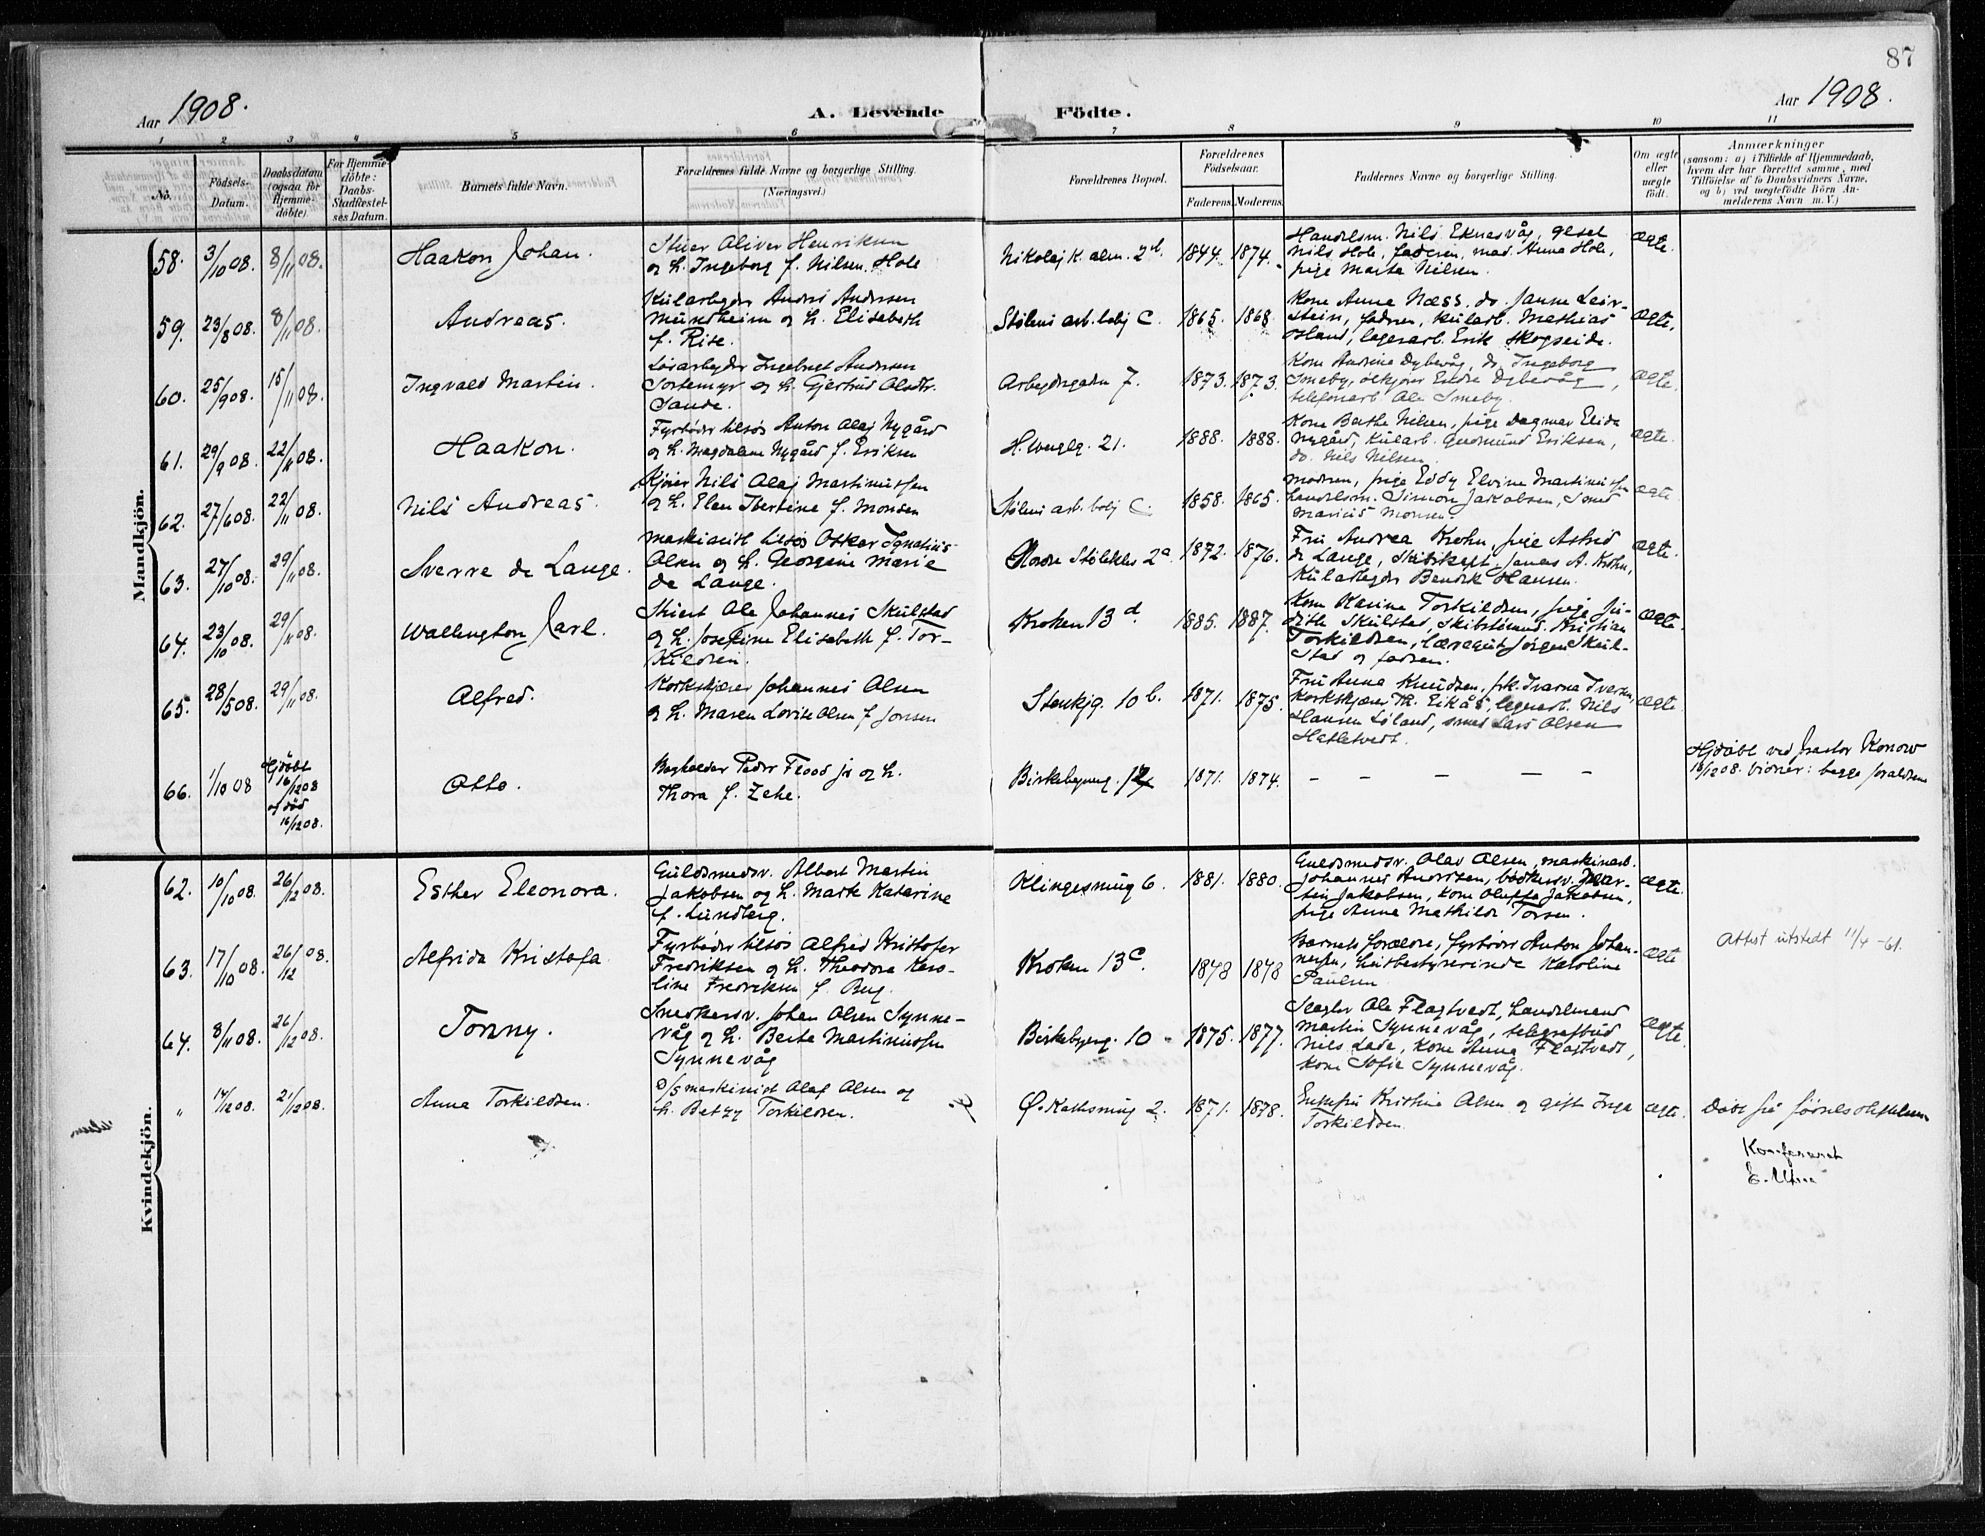 87
Aar 1908.
A. Levende Födte.
Aar 1908.
1 2 3 4 5 6 7 8 9 10 11
No.
Födsels-Datum.
Daabsdatum (ogsaa för Hjemme-döbte)
For Hjemme-döbte: Daabs-Stadfæstel-ses Datum.
Barnets fulde Navn.
Forældrenes fulde Navne og borgerlige Stilling.
(Næringsvei)
Forældrenes Bopæl.
Forældrenes Födselsaar.
Faderens Moderens
Faddernes Navne og borgerlige Stilling.
Om ægte eller uægte födt.
Anmærkninger
(saasom: a) i Tilfælde af Hjemmedaab, hvem der har forrettet samme, med Tilföielse af to Daabsvidners Navne, og b) ved uægtefödte Börn An-melderens Navn m. V.)
Mandkjön.
58. 3/10 08. 8/11 08. Haakon Johan.
Oliver Henriksen
og h. Ingeborg f. Nilsen. Hole
Nikolaj K. alm. 2d 1844. 1874.
Handelsm. Nils Eknesvåg,
Nils Hole, faderen, mad. Anna Hole,
pige Marta Nilsen. ægte.
59. 23/8 08. 8/11 08. Andreas.
Kularbeyder Andreas Andersen
Mundheim og h. Elisabeth
f. Rise.
Stølens arb.bolj C. 1865. 1868.
Kone Anna Næss, do. Janna Leir-
stein, faderen, kularb. Mathias
lagerarb. Erik Skogseide. ægte.
60. 25/9 08. 15/11 08. Ingvald Martin.
Løsarbeyder Ingebregt Andersen
Tortemyr og h. Gjertrud
Sande.
Arbeydergaden 7. 1873. 1873.
Kone Andrine Dybevåg, do. Ingeborg
Smeby, Endre Dybevåg,
telefonarb. Ole Smeby. ægte.
61. 29/9 08. 22/11 08. Haakon.
Fyrbøder tilsøs Anton Olaj Nygård
og h. Magdalene Nygård f. Eriksen
21. 1888. 1888.
Kone Berthe Nilsen, pige Dagmar Elida
Nygård, kularb. Gudmund Eriksen,
do. Nils Nilsen. ægte.
62. 27/6 08. 22/11 08. Nils Andreas.
Kjører Nils Olaj Martinussen
og h. Elen Ibertine f. Monsen
Stølens arb. bolj C. 1858. 1865.
Modren, pige Eddy Elvine Martinussen
handelsm. Simon Jakobsen, smed
Marius Monsen. ægte
63. 27/10 08. 29/11 08. Sverre de Lange.
Maskinist tilsøs Oskar Ignatius
Olsen og h. Georgine Marie
de Lange.
2a 1872. 1876.
Fru Andrea Krohn, pige Astrid
de Lange, skibskapt. Jonas A. Krohn,
Kularbeyder Bendik Hansen. ægte.
64. 23/10 08. 29/11 08. Wallington Jarl.
Ole Johannes Skulstad
og h. Josefine Elisabeth f. Tor-
kildsen.
Kroken 13 d. 1885. 1887.
Kone Karine Torkildsen, pige Ju-
dith Skulstad, Kristian
Torkildsen, læregut Jørgen Skul-
stad og fadren. ægte.
65. 28/5 08. 29/11 08. Alfred.
Korkskjærer Johannes Olsen
og h. Maren Lovise Olsen f. Jonsen
Stenkjg. 10 b. 1871. 1875.
Fru Anna Knudsen, frk. Ivarna Iversen,
Korkskjærer Th. Eikås, lagerarb. Nils
Hansen Løland, smed Lars Olsen
Hatletvedt. ægte.
66. 1/10 08 Hjdøbt 16/12 08 og død 16/12 08. Otto.
Bogholder Peder Flood jr og h.
Thora f. Zehe.
Birkebeynerg. 1871. 1874.
– – – – –
Hjdøbt ved pastor Konow
16/12 08. Vidner: begge foreldrene
Kvindekjön.
62. 10/10 08. 26/12 08. Esther Eleonora.
Guldsmedsv. Albert Martin
Jakobsen og h. Katarine
f. Lundberg.
Klingesmug 6. 1881. 1880.
Guldsmedsv. Olav Olsen, maskinarb.
Johannes Andersen, bødkersv. Mar-
tin Jakobsen, kone Oluffa Jakobsen,
pige Anna Mathilde Torsen. ægte.
63. 17/10 08. 26/12 08. Alfrida Kristofa.
Fyrbøder tilsøs Alfred Kristofer
Fredriksen og h. Theodora Karo-
line Fredriksen f. Berg.
Kroken 13 c. 1878 1878
Barnets forældre, fyrbøder Anton Johan-
nesen, husbestyrerinde Karoline
Paulsen ægte
Attest utstedt 11/4 -61.
64. 8/11 08. 26/12 08. Tonny.
Snedkersv. Johan Olsen Synne-
våg og h. Berta Martinussen
Synnevåg
Birkebeynerg. 10 1875. 1877.
Slagter Ole Flagtvedt, handelsmand
Martin Synnevåg, telegrafbud
Nils Lade, kone Anna Flagtvedt,
kone Sofie Synnevåg. ægte.
" 14/12 08. 21/12 08. Anna Torkildsen.
D/S maskinist Olaf Olsen og
h. Betzy Torkildsen.
Ø. 2. 1871. 1878.
Enkefru Kristine Olsen og gift Inga
Torkildsen. ægte.
Døbt på
Konfereret